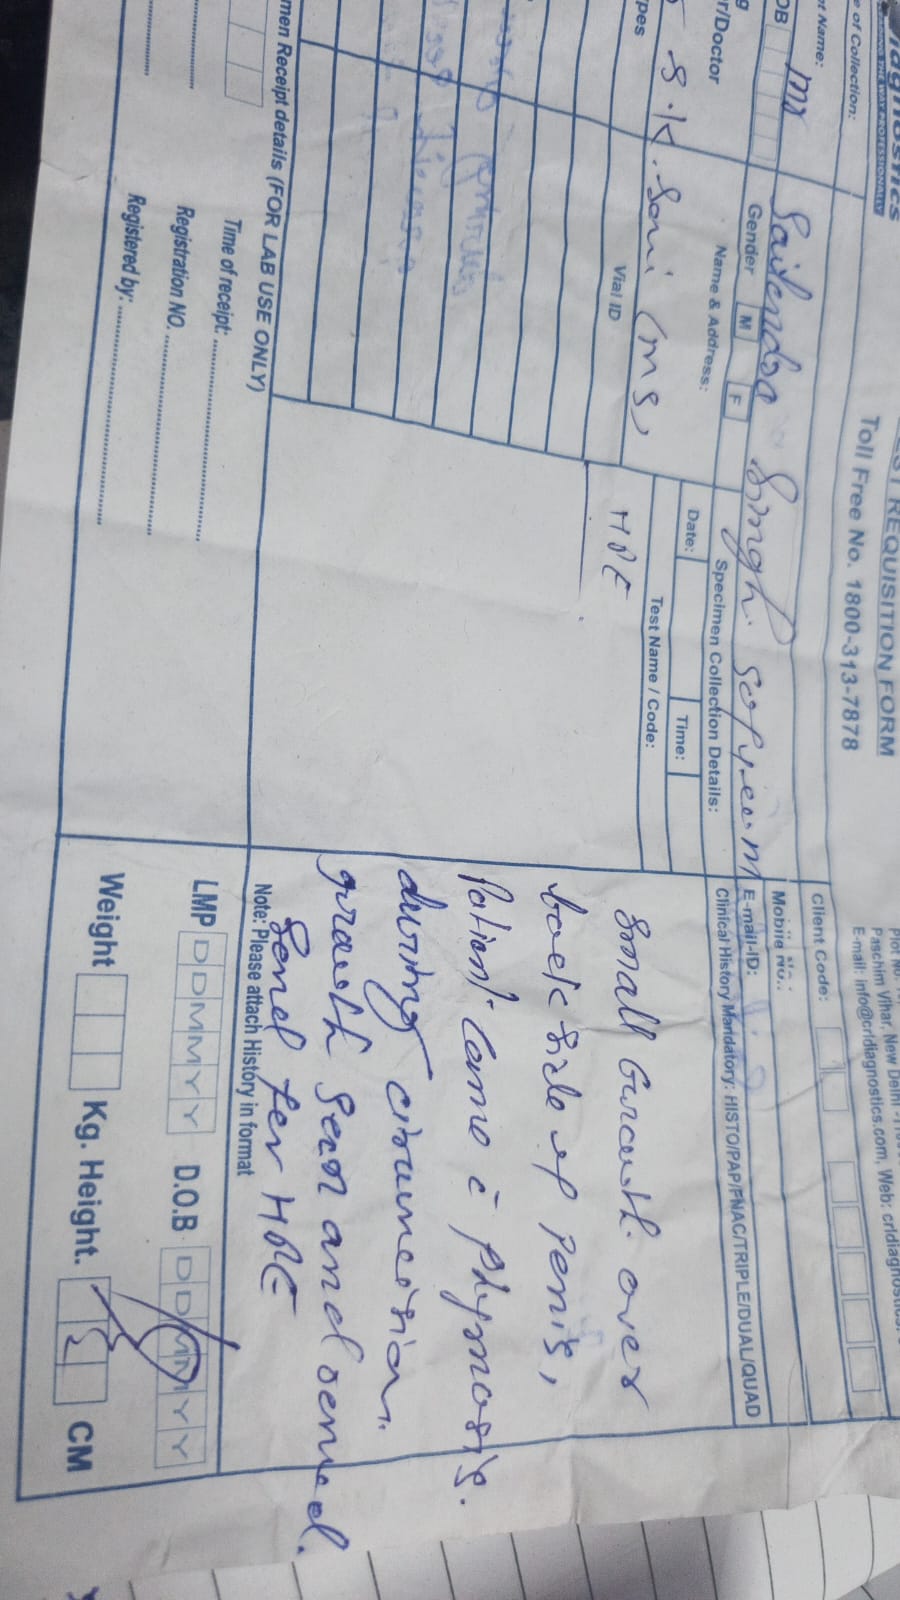 iagnostics
THE WAY PROFESSIONALLY
REQUISITION FORM
Toll Free No. 1800-313-7878
Paschim Vihar, New Delhi
E-mail: info@crldiagnostics.com, Web: crldiagnostics
e of Collection:
Client Code:
t Name:
mr Sailendra Singh
Mobile No.:
E-mail-ID:
OB
Gender M F
Specimen Collection Details:
Clinical History Mandatory: HISTO/PAP/FNAC/TRIPLE/DUAL/QUAD
r/Doctor
Name & Address:
Date:
Time:
S.K. Soni (ms)
ypes
Vial ID
Test Name / Code:
HPE
Small Growth over
back side of penis,
Patient came c phymosis.
during circumcision
growth seen and removed.
Send for HPE
Note: Please attach History in format
men Receipt details (FOR LAB USE ONLY)
Time of receipt:
Registration NO.
Registered by:
LMP DDMMYY D.O.B DDMMYY
Weight Kg. Height. CM